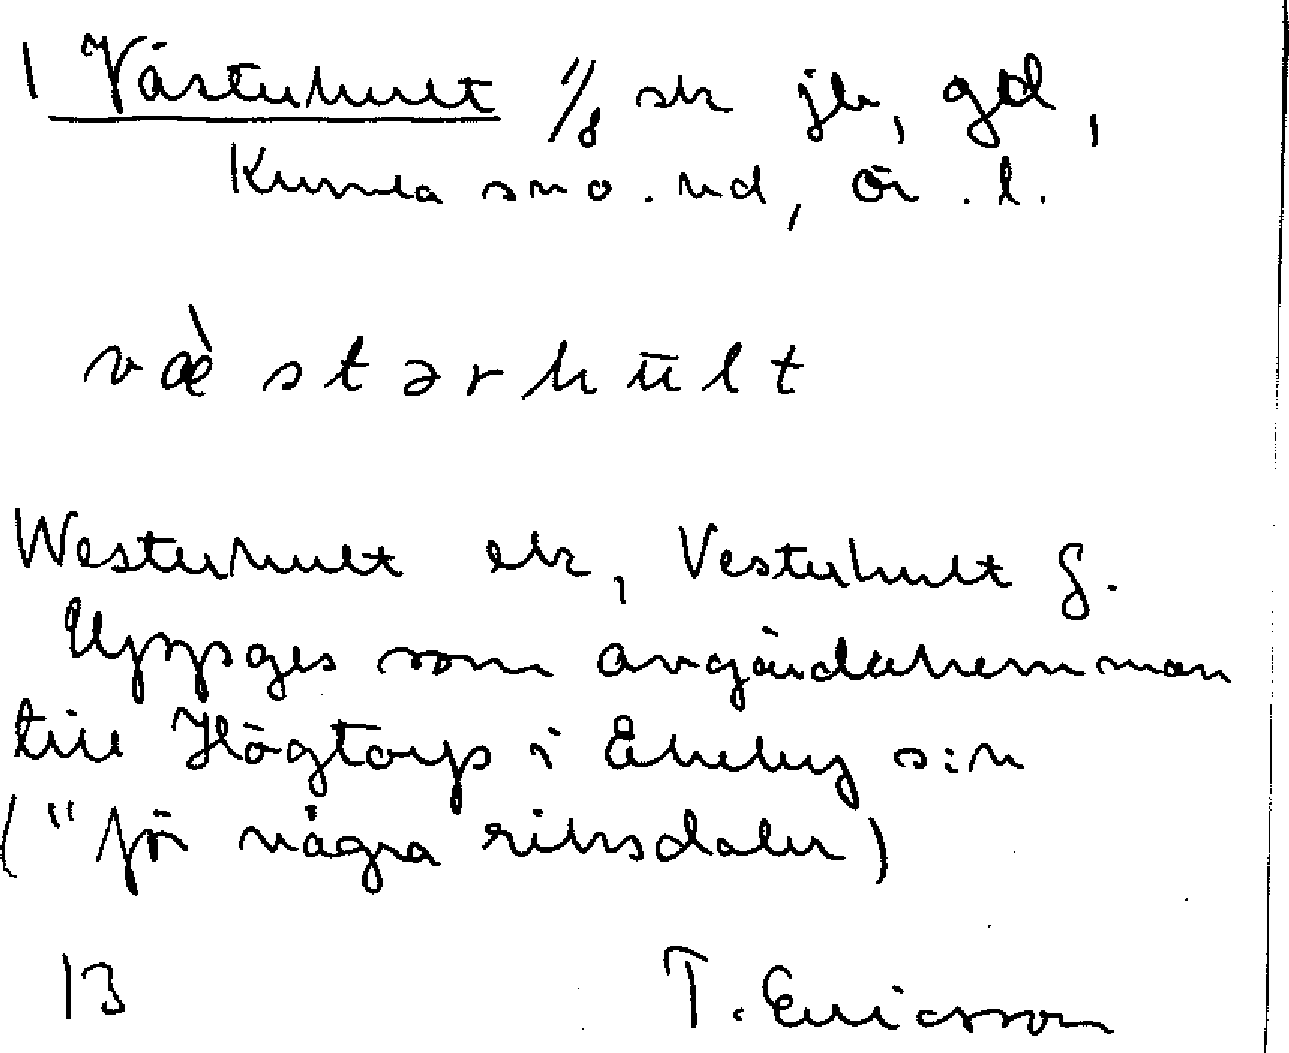 1 Västerhult 1/8 sk jb, gd,
Kumla sno. hd, Ör. l.
væ̀stərhūlt
Westerhult ek, Vesterhult G.
Uppges som avgärdahemman
till Högtorp i Ekeby s:n
(" för några riksdaler)
13 T. Ericsson